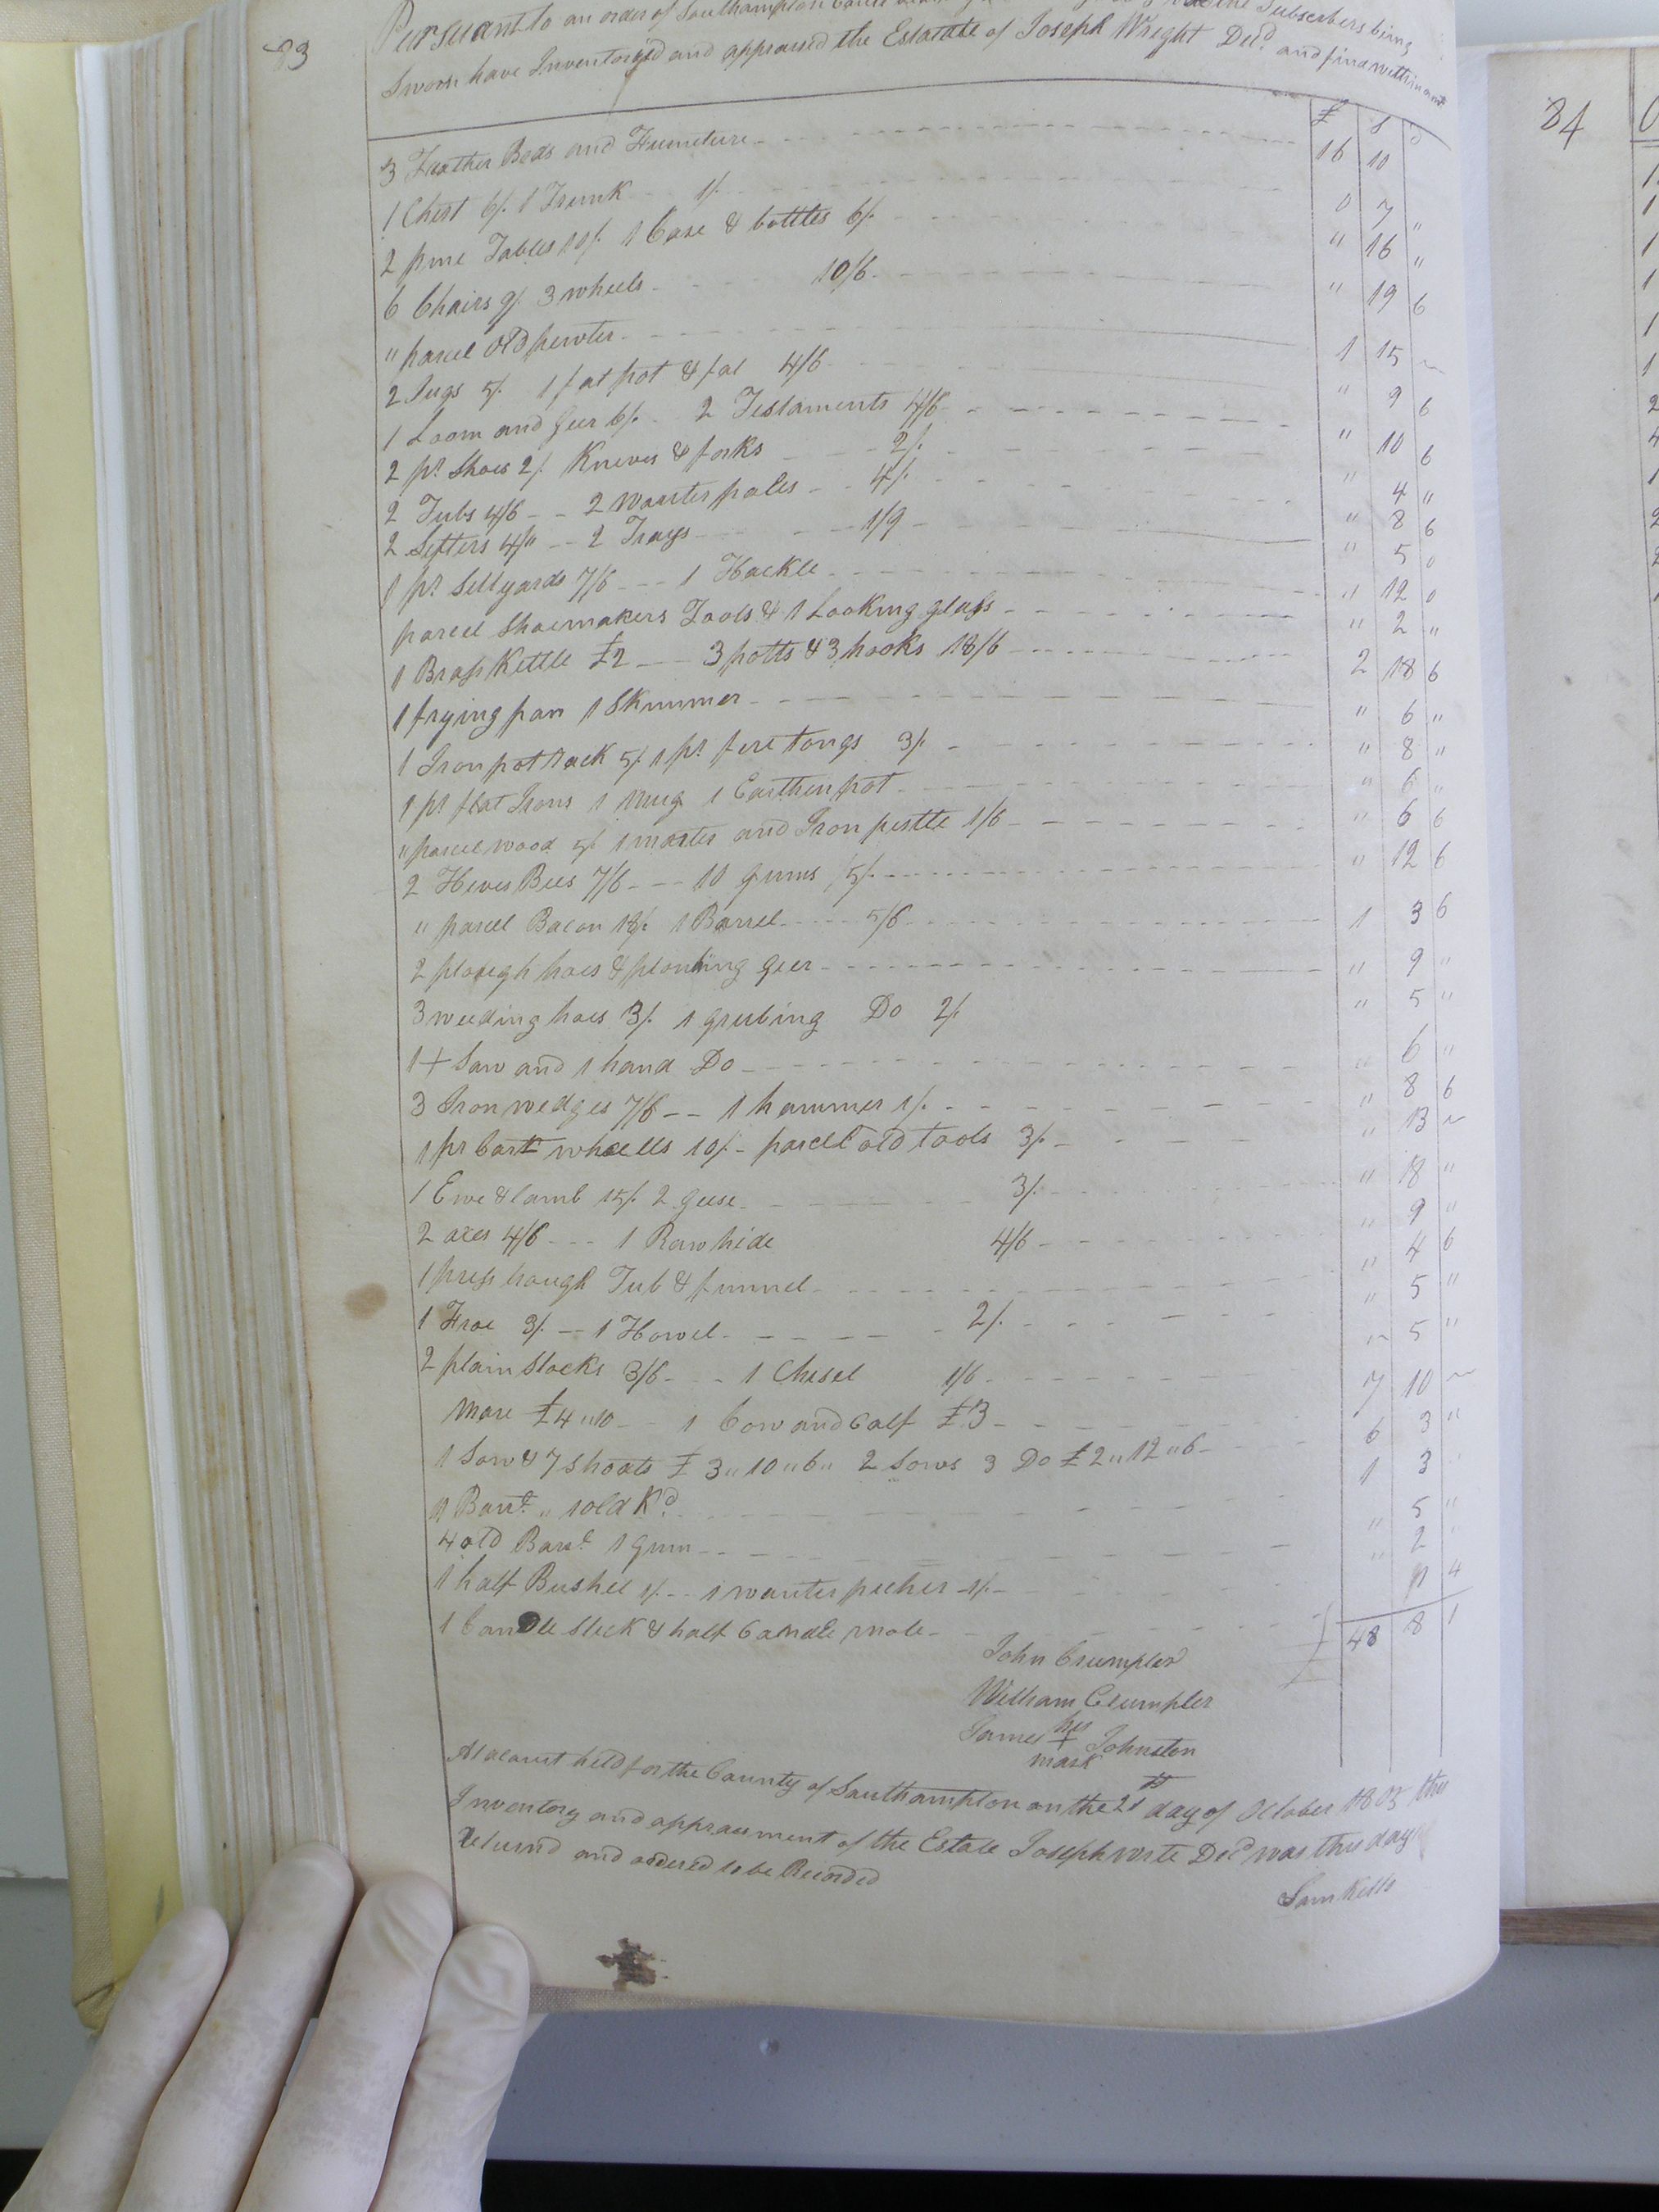 83
Pursuant to an order of Southampton Subscribers being
Sworn have Inventoried and appraised the Estatate of Joseph Wright Decd. and find
£ S D
3 Feather Beds and Furniture 16 10
1 Chest 6/. 1 Trunk 1/. 0 7 "
2 pine Tables 10/. 1 Case & bottles 6/. " 16 "
6 Chairs 9/. 3 wheels 10/6 " 19 6
" parcel old pewter 1 15 ~
2 Jugs 5/. 1 fat pot & fat 4/6 " 9 6
1 Loom and Geer 6/. 2 Testaments 4/6 " 10 6
2 pr. Shoes 2/. Knives & forks 2/. " 4 "
2 Tubs 4/6 2 wauter pales 4/. " 8 6
2 Sifters 4/" 2 Trays 1/9 " 5 0
1 pr Stillyards 7/6 1 Hackle " 12 0
parcel Shoemakers Tools & 1 Looking glass " 2 "
1 Brass Kettle £2 3 potts & 3 hooks 18/6 2 18 6
1 frying pan 1 Skimmer " 6 "
1 Iron pot rack 5/. 1 pr fire tongs 3/. " 8 "
1 pr flat Irons 1 Mug 1 Earthen pot " 6 "
" parcel wood 5/. 1 morter and Iron pestle 1/6 " 6 6
2 Hives Bees 7/6 10 gums 5/. " 12 6
" parcel Bacon 18/. 1 Barrel 5/6 1 3 6
2 plough hoes & plouhing geer " 9 "
3 weeding hoes 3/. 1 grubing Do 2/. " 5 "
1 + Saw and 1 hand Do " 6 "
3 Iron wedges 7/6 1 hammer 1/. " 8 6
1 pr Cart wheells 10/. parcel old tools 3/. " 13 ~
1 Ewe & lamb 15/. 2 geese 3/. " 18 "
2 axes 4/6 1 Raw hide 4/6 " 9 "
1 press trough Tub & funnel " 4 6
1 Froe 3/. 1 Howel 2/. " 5 "
2 plain Stocks 3/6 1 Chesel 1/6 " 5 "
Mare £4"10 1 Cow and Calf £3 7 10 ~
1 Sow & 7 Shoats £3"10"6" 2 Sows 3 Do £2"12"6 6 3 "
1 old 1 3 "
4 old 1 Gum " 5 "
1 half Bushel 1/. 1 wauter picher 1/. " 2 "
1 Candle Stick & half Candle mole 4
48 8 1
John Crumpler
William Crumpler
James his + mark Johnston
At a Court held for the County of Southampton on the 21st day of October 1805 this
Inventory and appraisment of the Estate Joseph Decd was this day
Returnd and ordered to be Recorded
Sam Kello
84